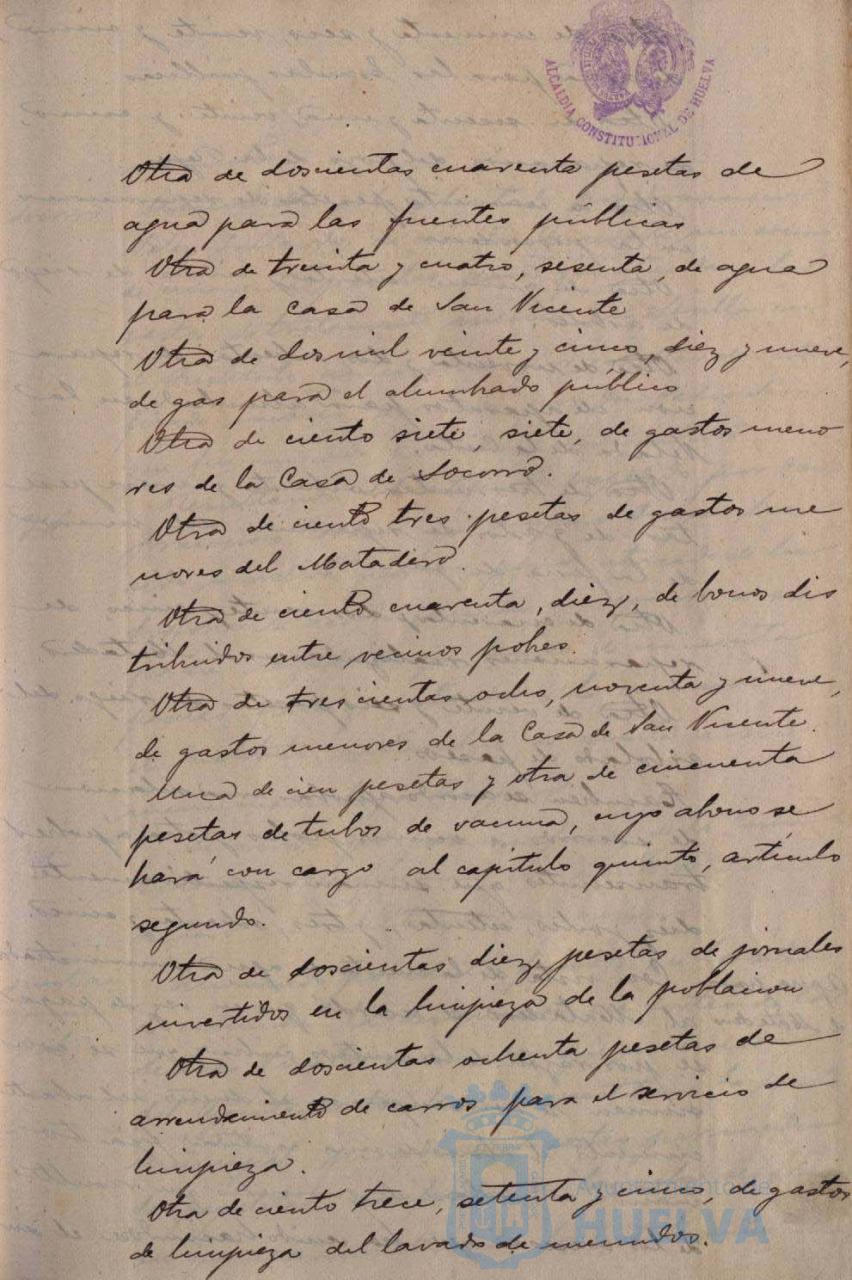 ALCALDIA CONSTITUCIONAL DE HUELVA
Otra de doscientas cuarenta pesetas de
agua para las fuentes públicas
Otra de treinta y cuatro, sesenta, de agua
para la casa de San Vicente
Otra de dos mil veinte y cinco, diez y nueve,
de gas para el alumbrado público
Otra de ciento siete, siete, de gastos meno
res de la Casa de Socorro.
Otra de ciento tres pesetas de gastos me
nores del Matadero.
Otra de ciento cuarenta, diez, de bonos dis
tribuidos entre vecinos pobres.
Otra de trescientas ocho, noventa y nueve,
de gastos menores de la Casa de San Vicente.
Una de cien pesetas y otra de cincuenta
pesetas de tubos de vacuna, cuyo abono se
hará con cargo al capítulo quinto, artículo
segundo.
Otra de doscientas diez pesetas de jornales
invertidos en la limpieza de la poblacion
Otra de doscientas ochenta pesetas de
arrendamiento de carros para el servicio de
limpieza.
Otra de ciento trece, setenta y cinco, de gastos
de limpieza del lavado de menudos.
Ayuntamiento de
HUELVA